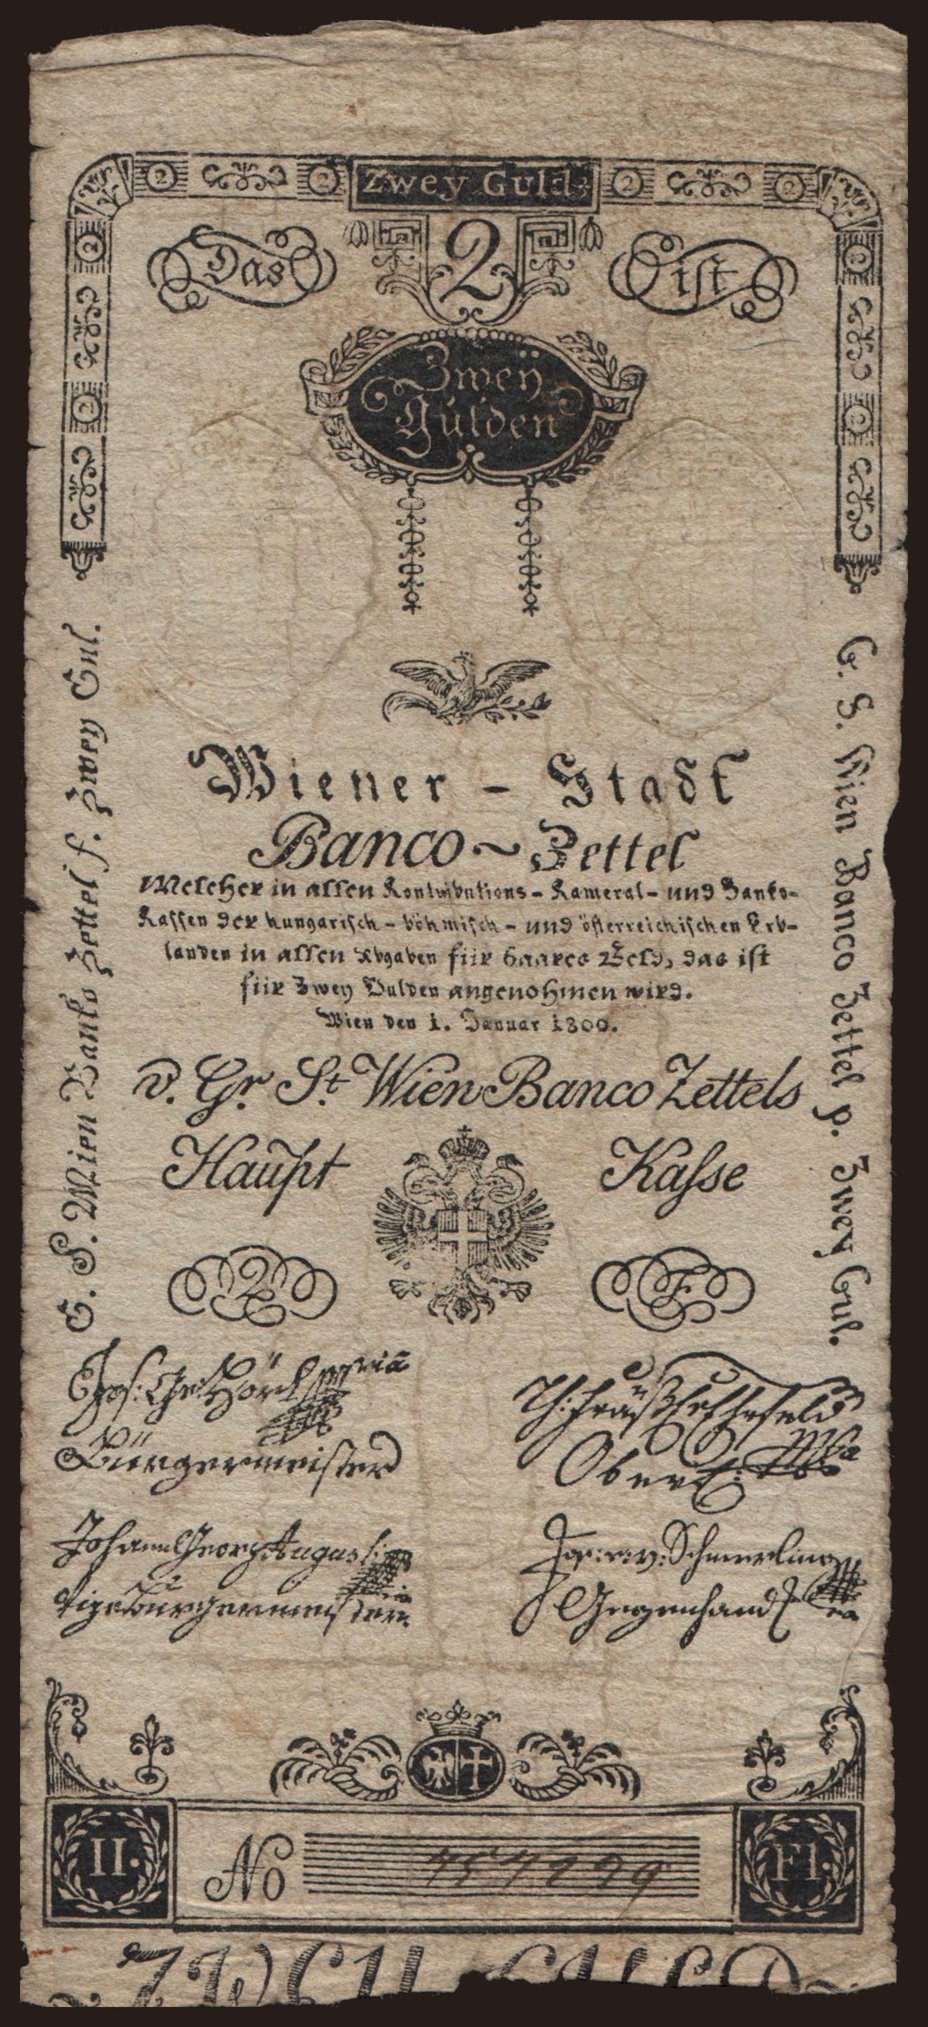 2 2 Zwey Guld: 2 2
Das 2 ist
2 2
2 2
Zweÿ
Gulden
G. S. Wien Banko Zettel f. Zwey Gul.
G. S. Wien Banco Zettel p. Zwey Gul.
Wiener - Stadt
Banco ~ Zettel
Welcher in allen Kontributions - Kameral - und Banko-
Kassen der hungarisch - böhmisch - und österreichischen Erb-
landen in allen Abgaben für baares Geld, das ist
für Zwey Gulden angenohmen wird.
Wien den 1. Januar 1800.
v. Gr. St. Wien Banco Zettels
Haupt Kasse
2 F
Jos: Geo: Hörl
Bürgermeister
Johann Georg Augusti
Vizebürgermeister
v: Schmerling
Gegenhand
II. No FI.
ZWEU GULD